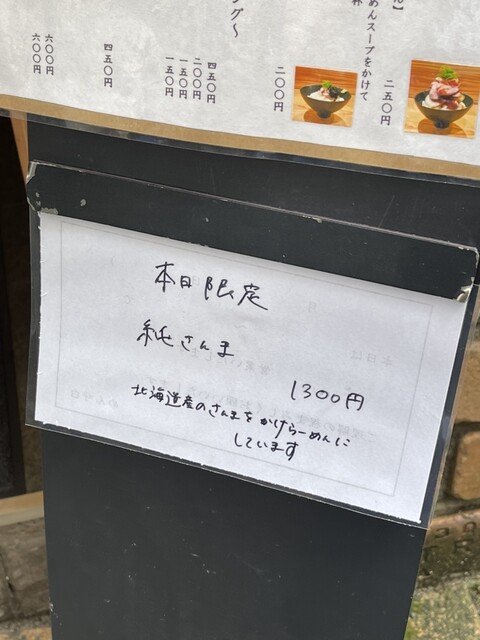 ん】
めんスープをかけて
杯
二五〇円
二〇〇円
ング～
四五〇円
二〇〇円
一五〇円
一五〇円
四五〇円
六〇〇円
六〇〇円
本日限定
純さんま
1300円
北海道産のさんまをかけらーめんに
しています